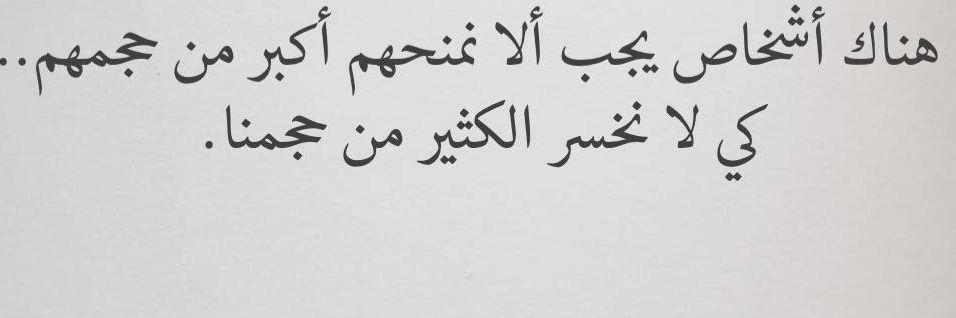 هناك أشخاص يجب ألا نمنحهم أكبر من حجمهم..
كي لا نخسر الكثير من حجمنا.